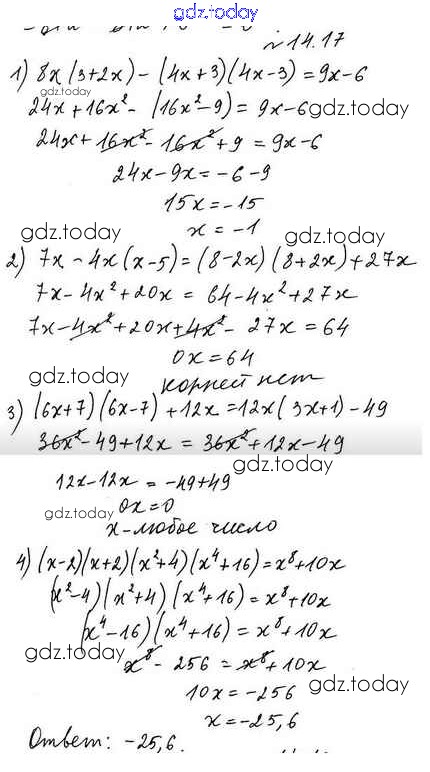 gdz.today
№14.17
1) 8x(3+2x)-(4x+3)(4x-3)=9x-6
24x+16x²-(16x²-9)=9x-6 gdz.today
gdz.today
24x+16x²-16x²+9=9x-6
24x-9x=-6-9
15x=-15
x=-1
gdz.today gdz.today
2) 7x-4x(x-5)=(8-2x)(8+2x)+27x
7x-4x²+20x=64-4x²+27x
7x-4x²+20x+4x²-27x=64
0x=64
gdz.today gdz.today
корней нет
3) (6x+7)(6x-7)+12x=12x(3x+1)-49
36x²-49+12x=36x²+12x-49
gdz.today
12x-12x=-49+49
0x=0
gdz.today
x-любое число
4) (x-2)(x+2)(x²+4)(x⁴+16)=x⁸+10x
(x²-4)(x²+4)(x⁴+16)=x⁸+10x
(x⁴-16)(x⁴+16)=x⁸+10x
gdz.today
x⁸-256=x⁸+10x
10x=-256 gdz.today
x=-25,6
Ответ: -25,6.